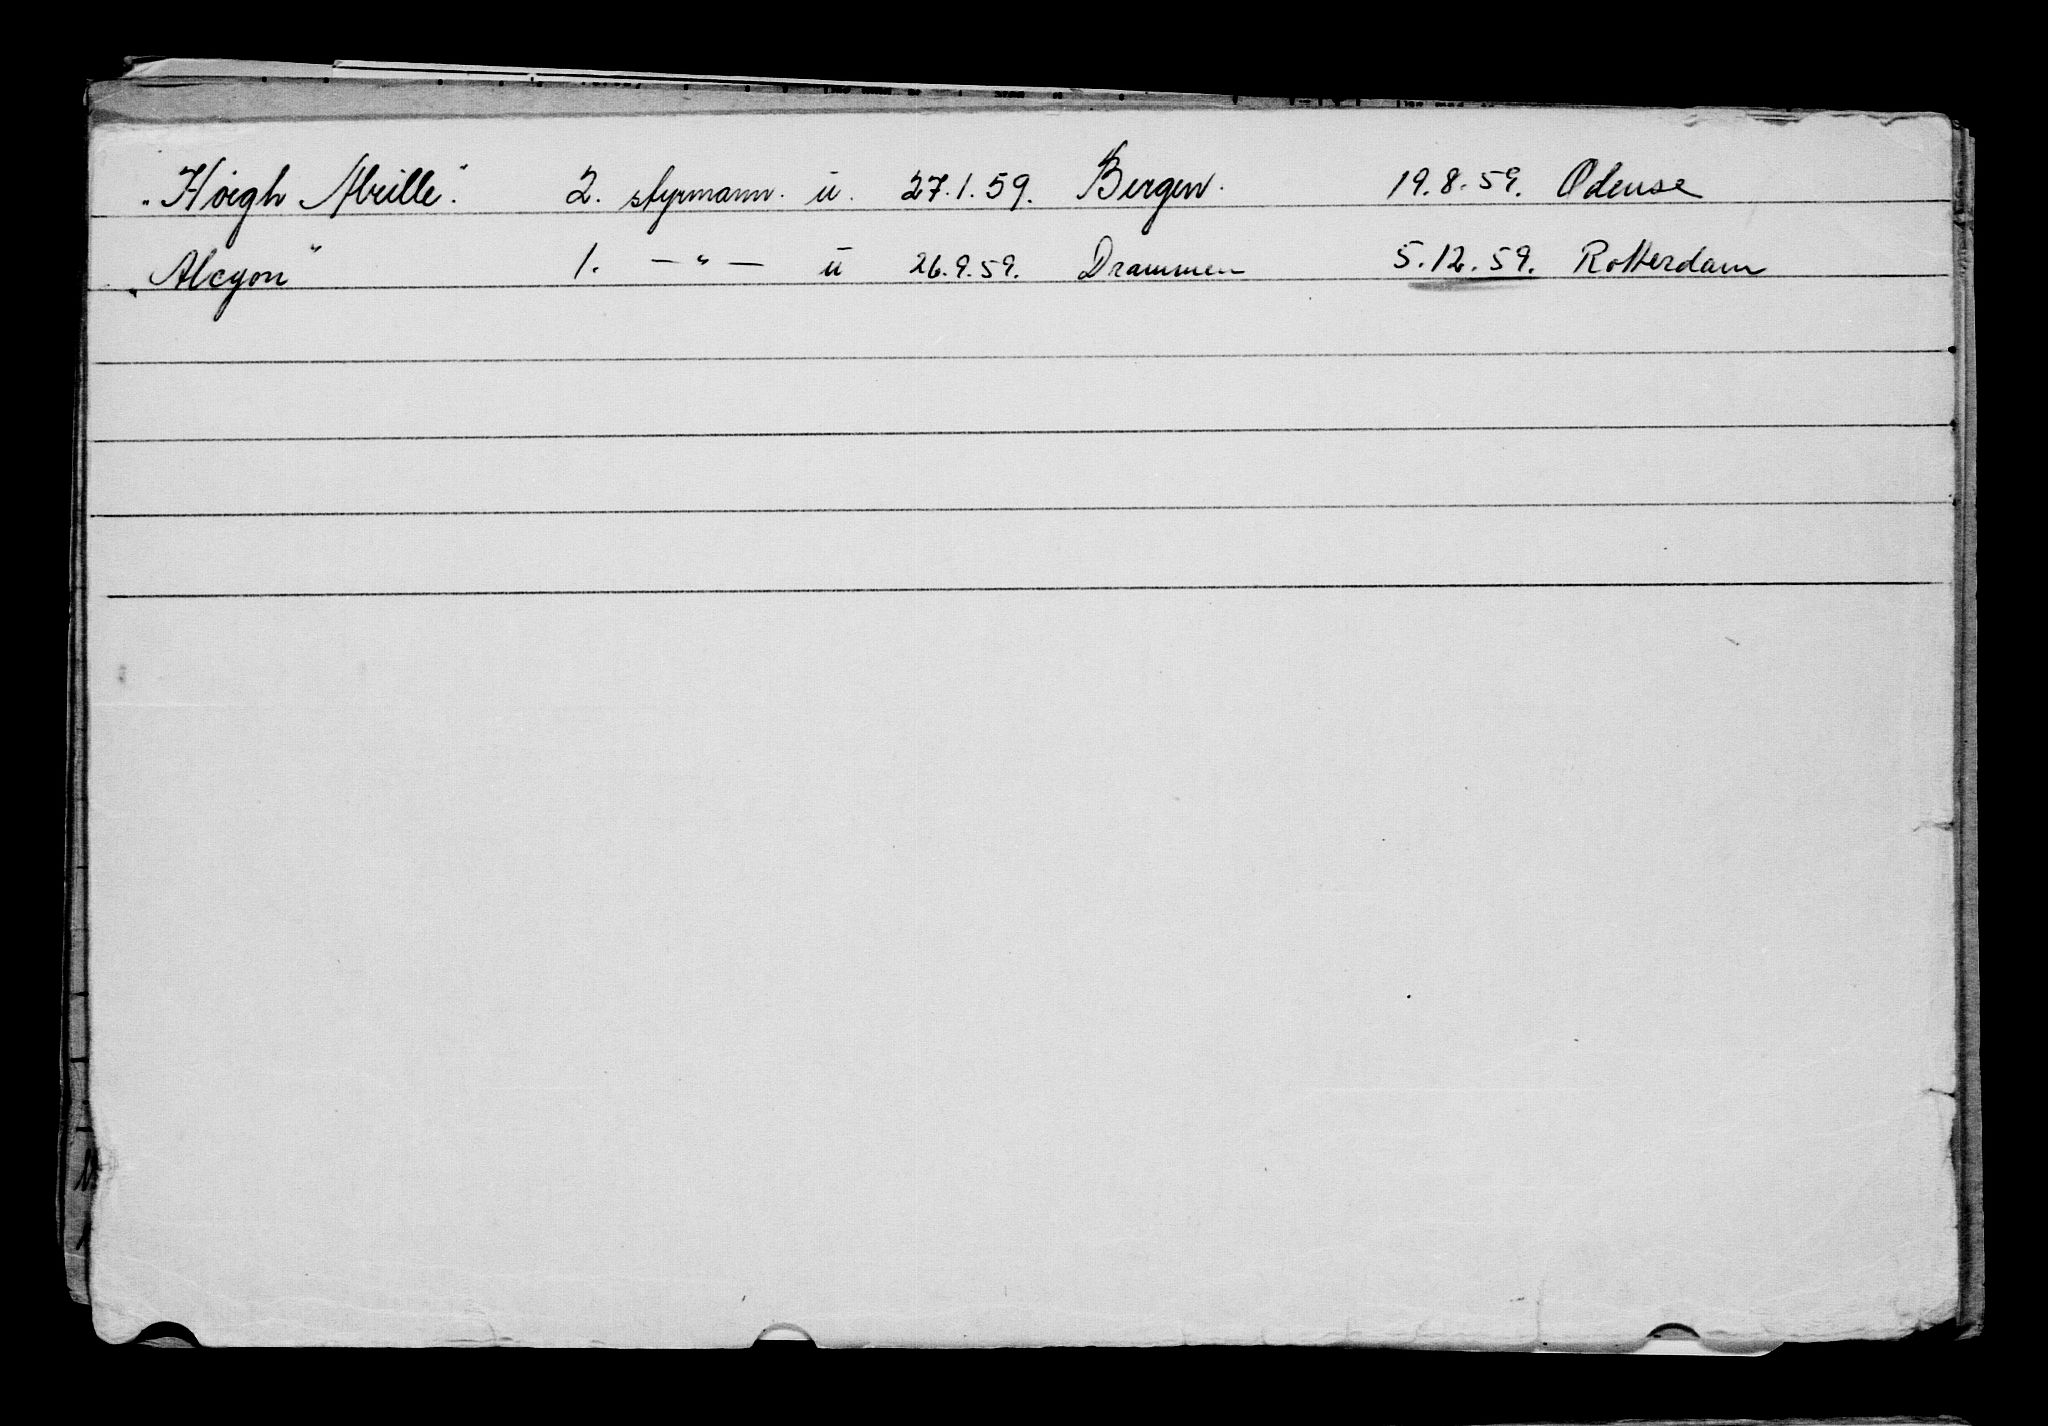 "Høegh Abeille". 2. styrmann. u. 27.1.59. Bergen. 19.8.59. Odense
"Alcyon" 1. —"— u 26.9.59. Drammen 5.12.59. Rotterdam